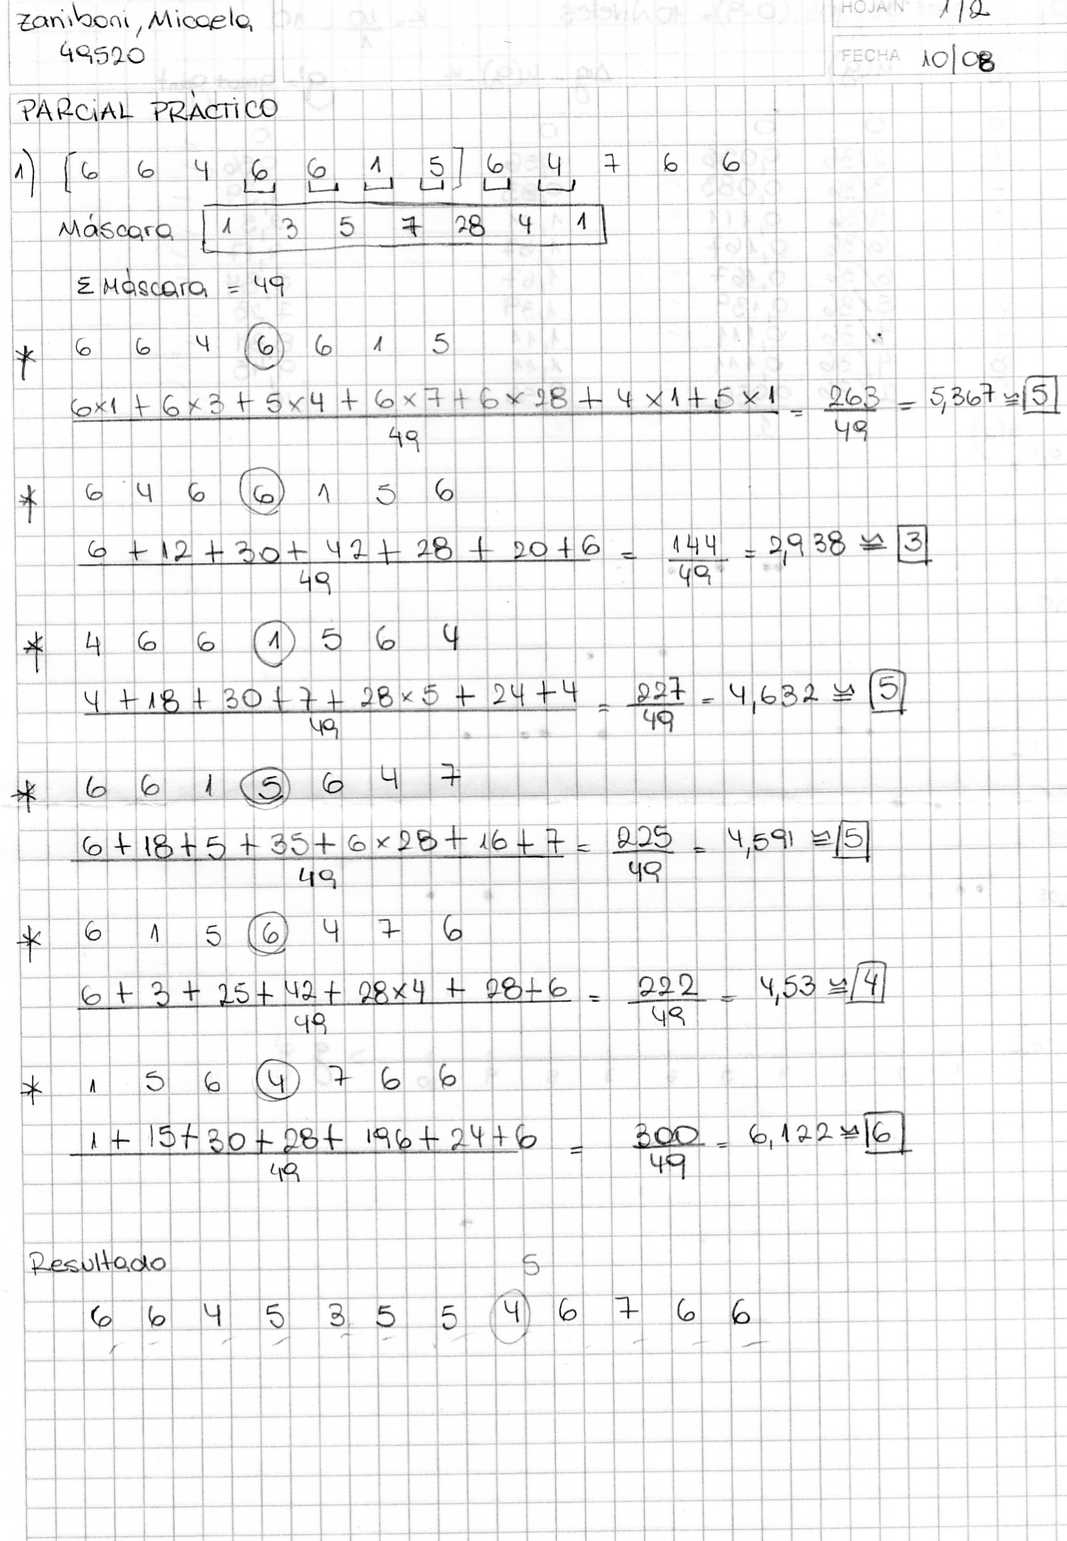 Zaniboni, Micaela
49520
HOJA N° 1/2
FECHA 10/08
PARCIAL PRÁCTICO
1) [6 6 4 6 6 1 5] 6 4 7 6 6
Máscara 1 3 5 7 28 4 1
Σ Máscara = 49
* 6 6 4 6 6 1 5
6x1 + 6x3 + 5x4 + 6x7 + 6x28 + 4x1 + 5x1 = 263 = 5,367 ≅ 5
49 49
* 6 4 6 6 1 5 6
6 + 12 + 30 + 42 + 28 + 20 + 6 = 144 = 2,938 ≅ 3
49 49
* 4 6 6 1 5 6 4
4 + 18 + 30 + 7 + 28x5 + 24 + 4 = 227 = 4,632 ≅ 5
49 49
* 6 6 1 5 6 4 7
6 + 18 + 5 + 35 + 6x28 + 16 + 7 = 225 = 4,591 ≅ 5
49 49
* 6 1 5 6 4 7 6
6 + 3 + 25 + 42 + 28x4 + 28 + 6 = 222 = 4,53 ≅ 4
49 49
* 1 5 6 4 7 6 6
1 + 15 + 30 + 28 + 196 + 24 + 6 = 300 = 6,122 ≅ 6
49 49
Resultado
5
6 6 4 5 3 5 5 4 6 7 6 6